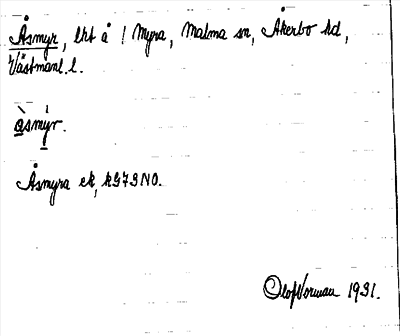 Åsmyr, lht å ! Myra, Malma sn, Åkerbo hd,
Västmanl. l.
åsmyr.
Åsmyra ek, kG73NO.
Olof Norman 1931.